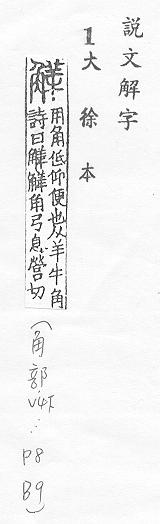 説文解字
1大徐本
觲:用角低仰便也从羊牛角
詩曰觲觲角弓息營切
(角部V4下:P8B9)